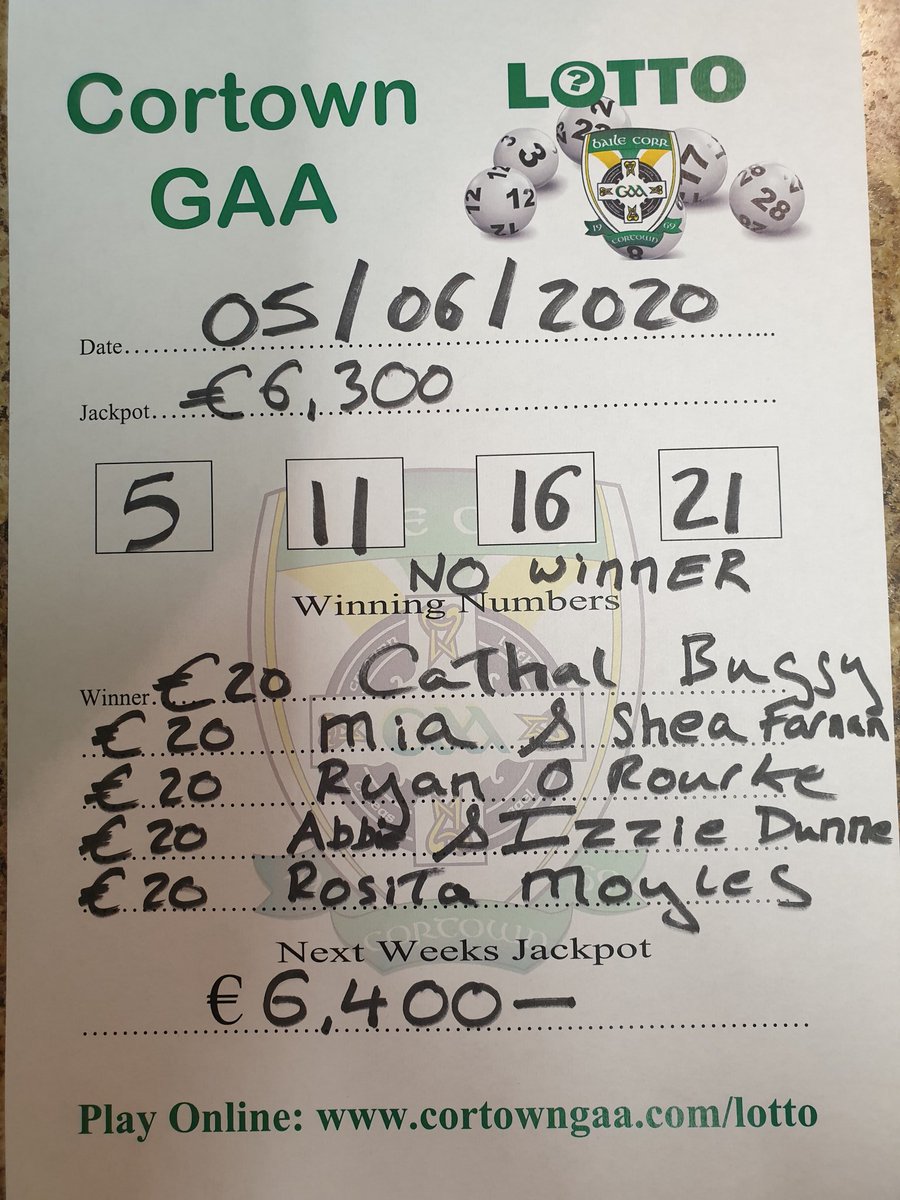 Cortown
GAA
LOTTO
BAILE CORR
GAA
1969
CORTOWN
3
12
17
28
8
Date 05/06/2020
Jackpot €6,300
5 11 16 21
NO WINNER
Winning Numbers
Winner €20 Cathal Buggy
€20 Mia & Shea Farnan
€20 Ryan O Rourke
€20 Abbie & Izzie Dunne
€20 Rosita Moyles
Next Weeks Jackpot
€6,400—
Play Online: www.cortowngaa.com/lotto